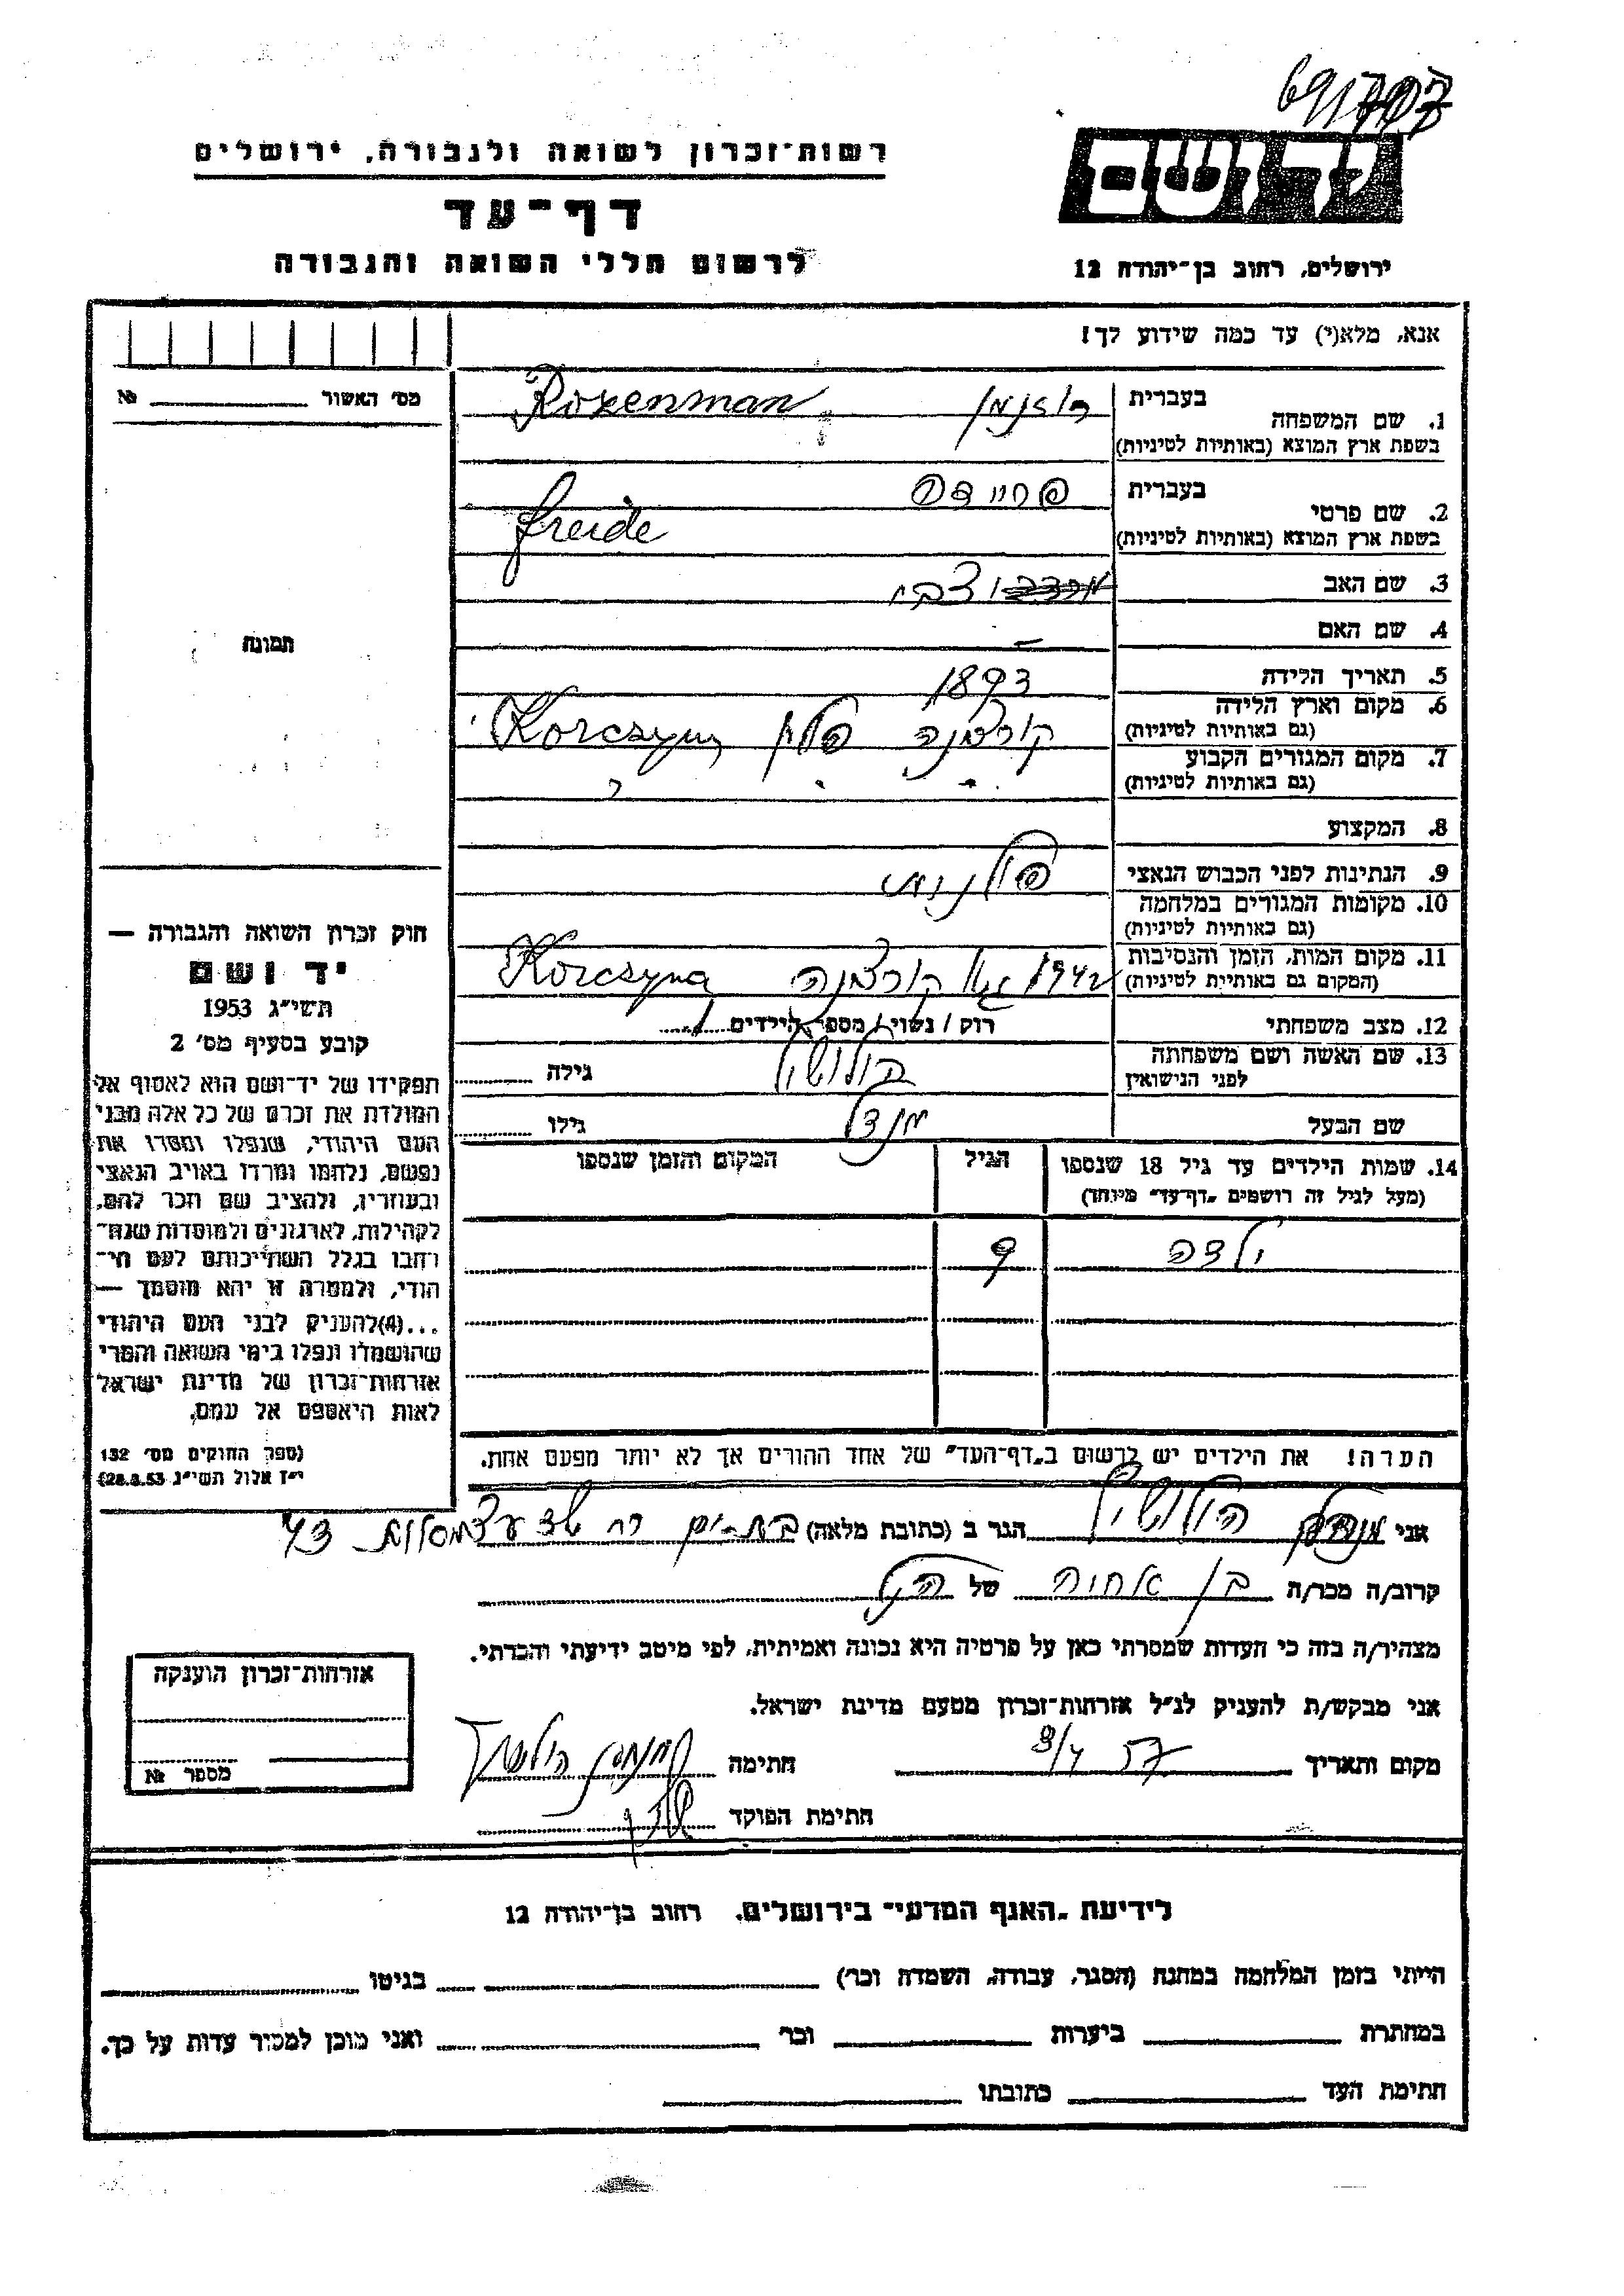 רשות־זכרון לשואה ולגבורה, ירושלים
דף־עד
לרשום חללי השואה והגבורה
יד ושם
ירושלים, רחוב בן־יהודה 12
אנא, מלא(י) עד כמה שידוע לך!
מס׳ האשור №
תמונה
1. שם המשפחה
בעברית רוזנמן Rozenman
בשפת ארץ המוצא (באותיות לטיניות)
2. שם פרטי
בעברית
בשפת ארץ המוצא (באותיות לטיניות) freide
3. שם האב צבי
4. שם האם –
5. תאריך הלידה 1893
6. מקום וארץ הלידה
(גם באותיות לטיניות) קורצ'נה פולין Korczyn
7. מקום המגורים הקבוע
(גם באותיות לטיניות)
8. המקצוע
9. הנתינות לפני הכבוש הנאצי פולנית
10. מקומות המגורים במלחמה
(גם באותיות לטיניות)
11. מקום המות, הזמן והנסיבות
(המקום גם באותיות לטיניות) 1942 קורצ'נה Korczyna
12. מצב משפחתי רוק / נשוי / מספר הילדים 1
13. שם האשה ושם משפחתה
לפני הנישואין גילה
שם הבעל מנדל גילו
14. שמות הילדים עד גיל 18 שנספו הגיל המקום והזמן שנספו
(מעל לגיל זה רושמים „דף־עד״ מיוחד)
ילדה 9
הערה! את הילדים יש לרשום ב„דף־העד״ של אחד ההורים אך לא יותר מפעם אחת.
חוק זכרון השואה והגבורה —
יד ושם
תשי״ג 1953
קובע בסעיף מס׳ 2
תפקידו של יד־ושם הוא לאסוף אל
המולדת את זכרם של כל אלה מבני
העם היהודי, שנפלו ומסרו את
נפשם, נלחמו ומרדו באויב הנאצי
ובעוזריו, ולהציב שם וזכר להם,
לקהילות, לארגונים ולמוסדות שנח־
רבו בגלל השתייכותם לעם הי־
הודי, ולמטרה זו יהא מוסמך —
...(4)להעניק לבני העם היהודי
שהושמדו ונפלו בימי השואה והמרי
אזרחות־זכרון של מדינת ישראל
לאות היאספם אל עמם.
(ספר החוקים מס׳ 132
י״ז אלול תשי״ג 28.8.53)
אני הגר ב (כתובת מלאה) בת-ים
קרוב/ה מכר/ה בן אחיה של הנ"ל
מצהיר/ה בזה כי העדות שמסרתי כאן על פרטיה היא נכונה ואמיתית, לפי מיטב ידיעתי והכרתי.
אני מבקש/ת להעניק לנ״ל אזרחות־זכרון מטעם מדינת ישראל.
מקום ותאריך 8/4 57 חתימה
חתימת הפוקד
אזרחות־זכרון הוענקה
מספר №
לידיעת „האגף המדעי״ בירושלים, רחוב בן־יהודה 12
הייתי בזמן המלחמה במחנה (הסגר, עבודה, השמדה וכו׳) בגיטו
במחתרת ביערות וכו׳ ואני מוכן למסור עדות על כך.
חתימת העד כתובתו